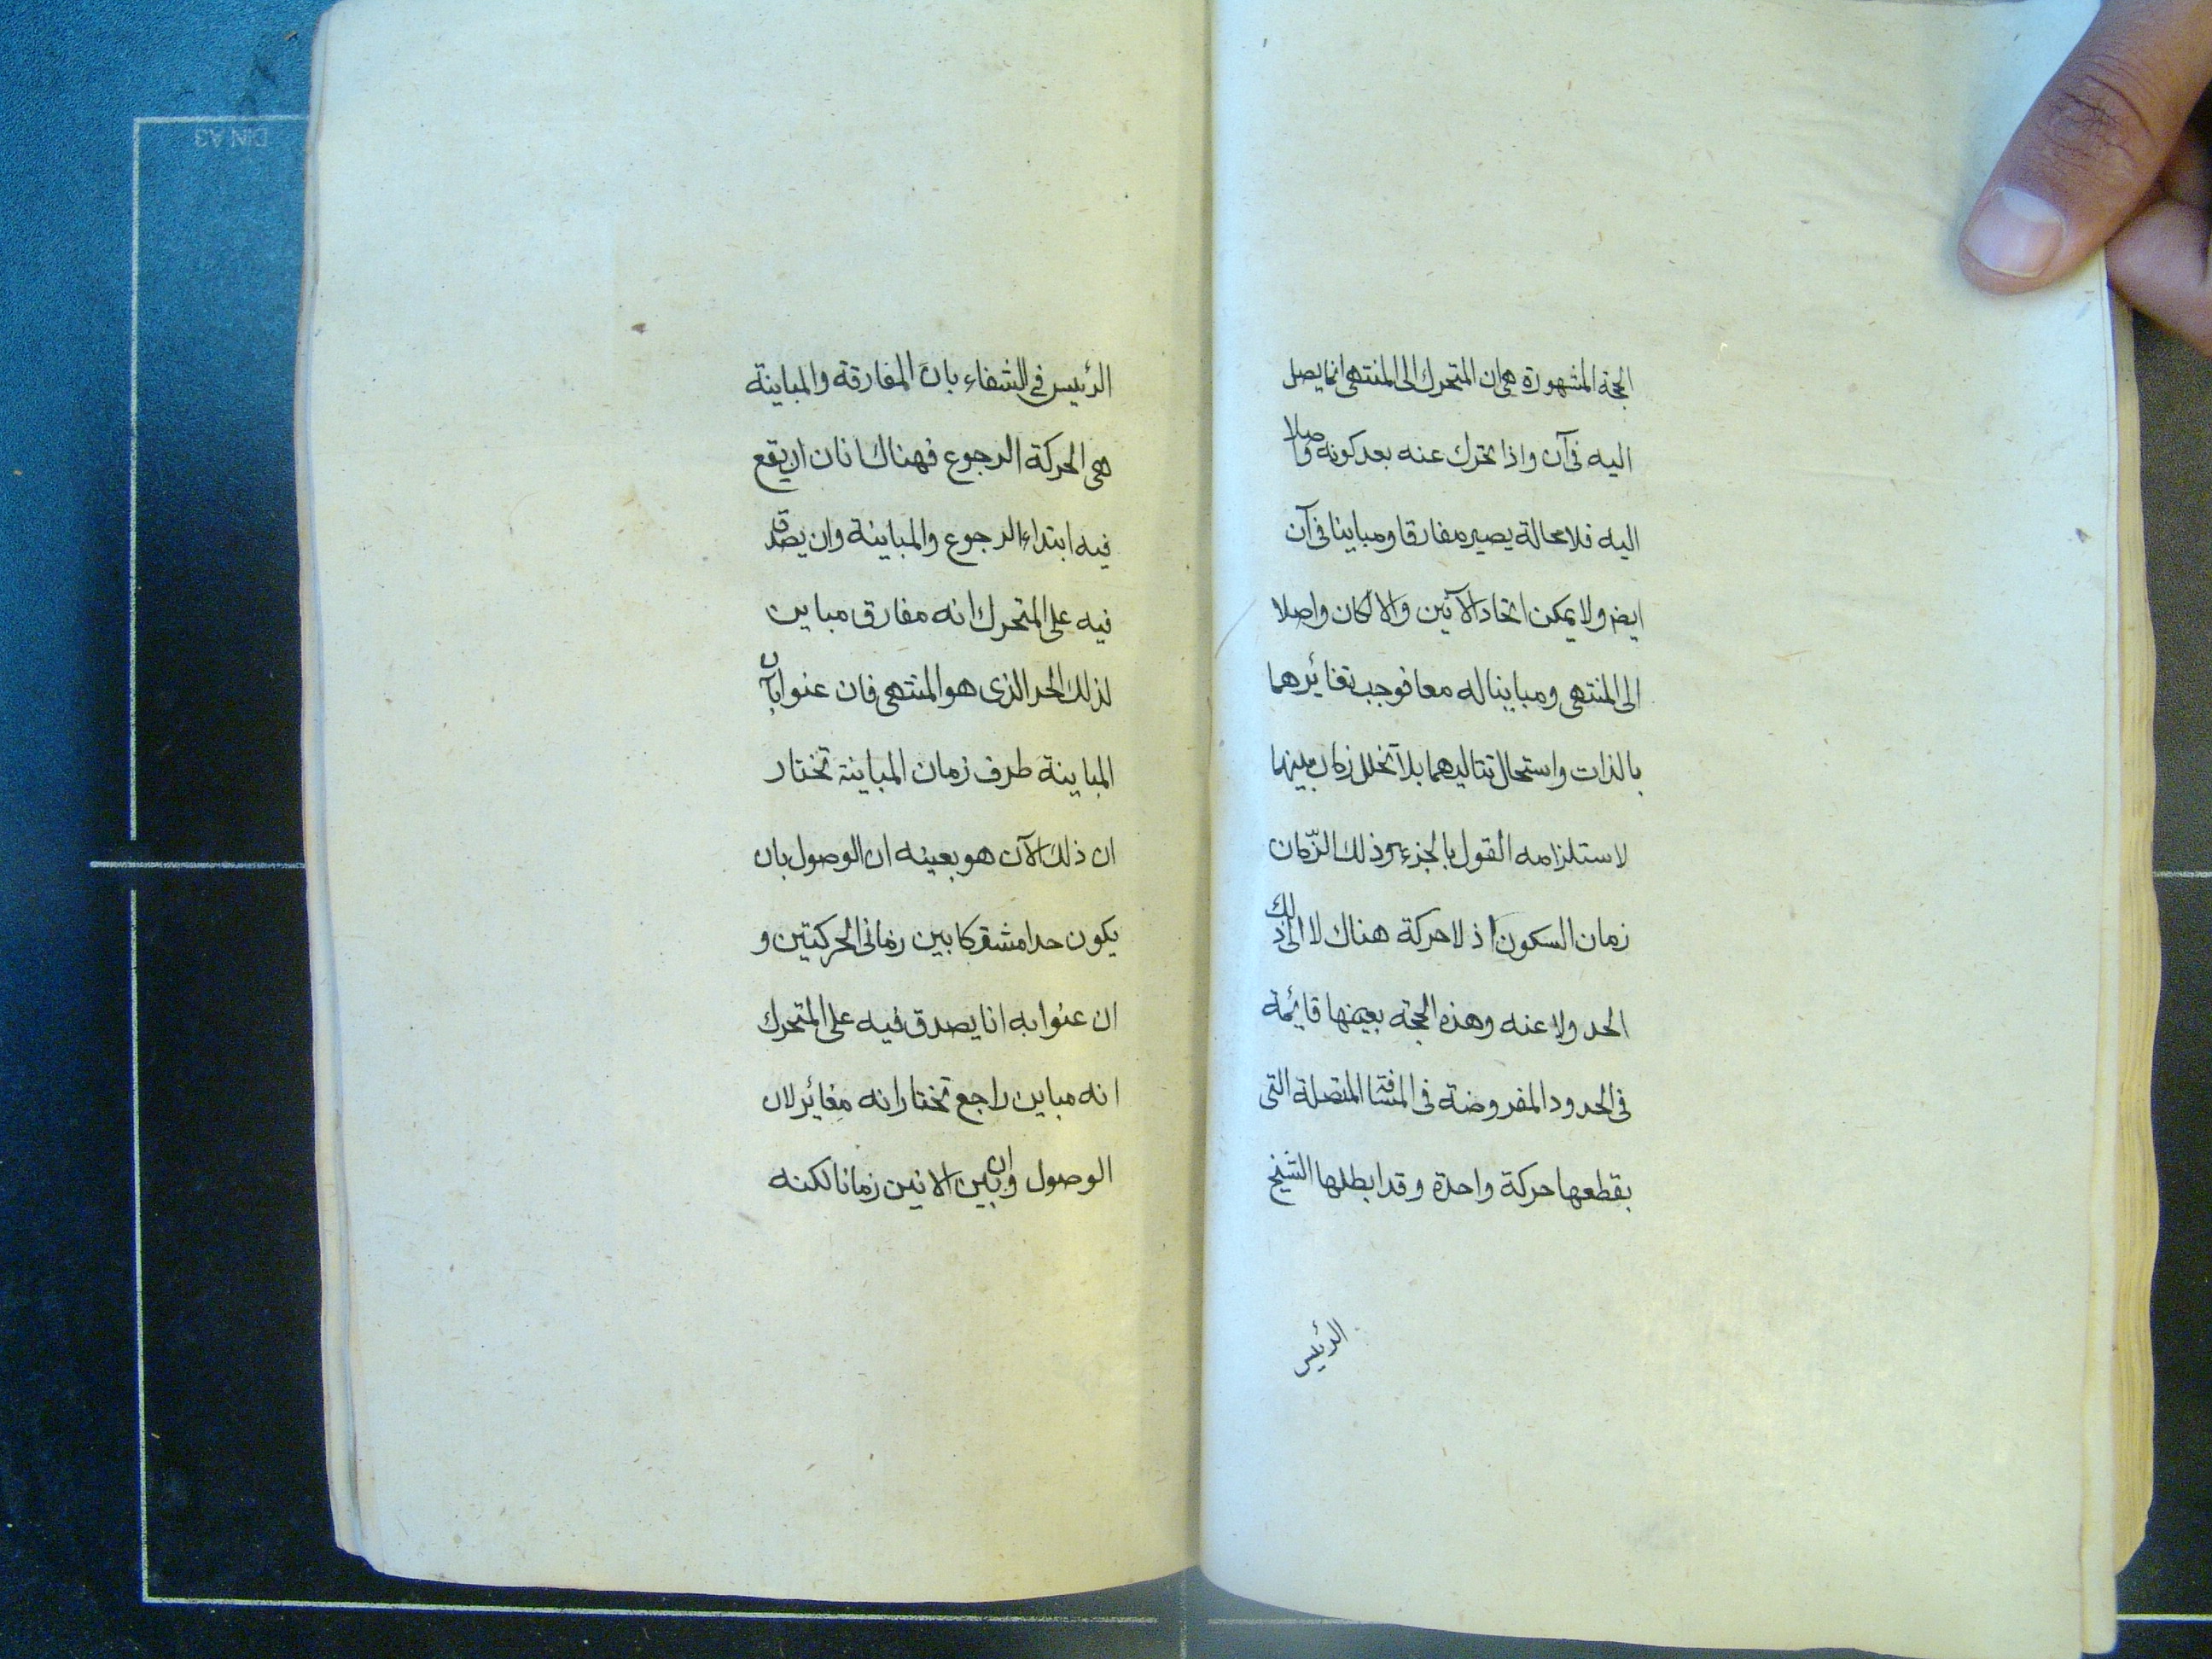 الحجة المشهورة هى ان المتحرك الى المنتهى انما يصل
اليه فى آن واذا تحرك عنه بعد كونه واصلا
اليه فلا محالة يصير مفارقا ومباينا فى آن
ايض ولا يمكن اتحاد الآنين والا لكان واصلا
الى المنتهى ومباينا له معا فوجب تغائرهما
بالذات واستحال تتاليهما بلا تخلل زمان بينهما
لاستلزامه القول بالجزء وذلك الزّمان
زمان السكون اذ لا حركة هناك لا الى ذلك
الحد ولا عنه وهذه الحجة بعينها قائمة
فى الحدود المفروضة فى المسافة المتصلة التى
يقطعها حركة واحدة وقد ابطلها الشيخ
الرئيس
الرئيس فى الشفاء بانّ المفارقة والمباينة
هى الحركة الرجوع فهناك انان ان يقع
فيه ابتداء الرجوع والمباينة وان يصدق
فيه على المتحرك انه مفارق مباين
لذلك الحد الذى هو المنتهى فان عنوا بآن
المباينة طرف زمان المباينة نختار
ان ذلك الآن هو بعينه ان الوصول بان
يكون حدا مشتركا بين زمانى الحركتين و
ان عنوا به انا يصدق فيه على المتحرك
انه مباين راجع نختار انه مغائر لان
الوصول وان بين الانين زمانا لكنه